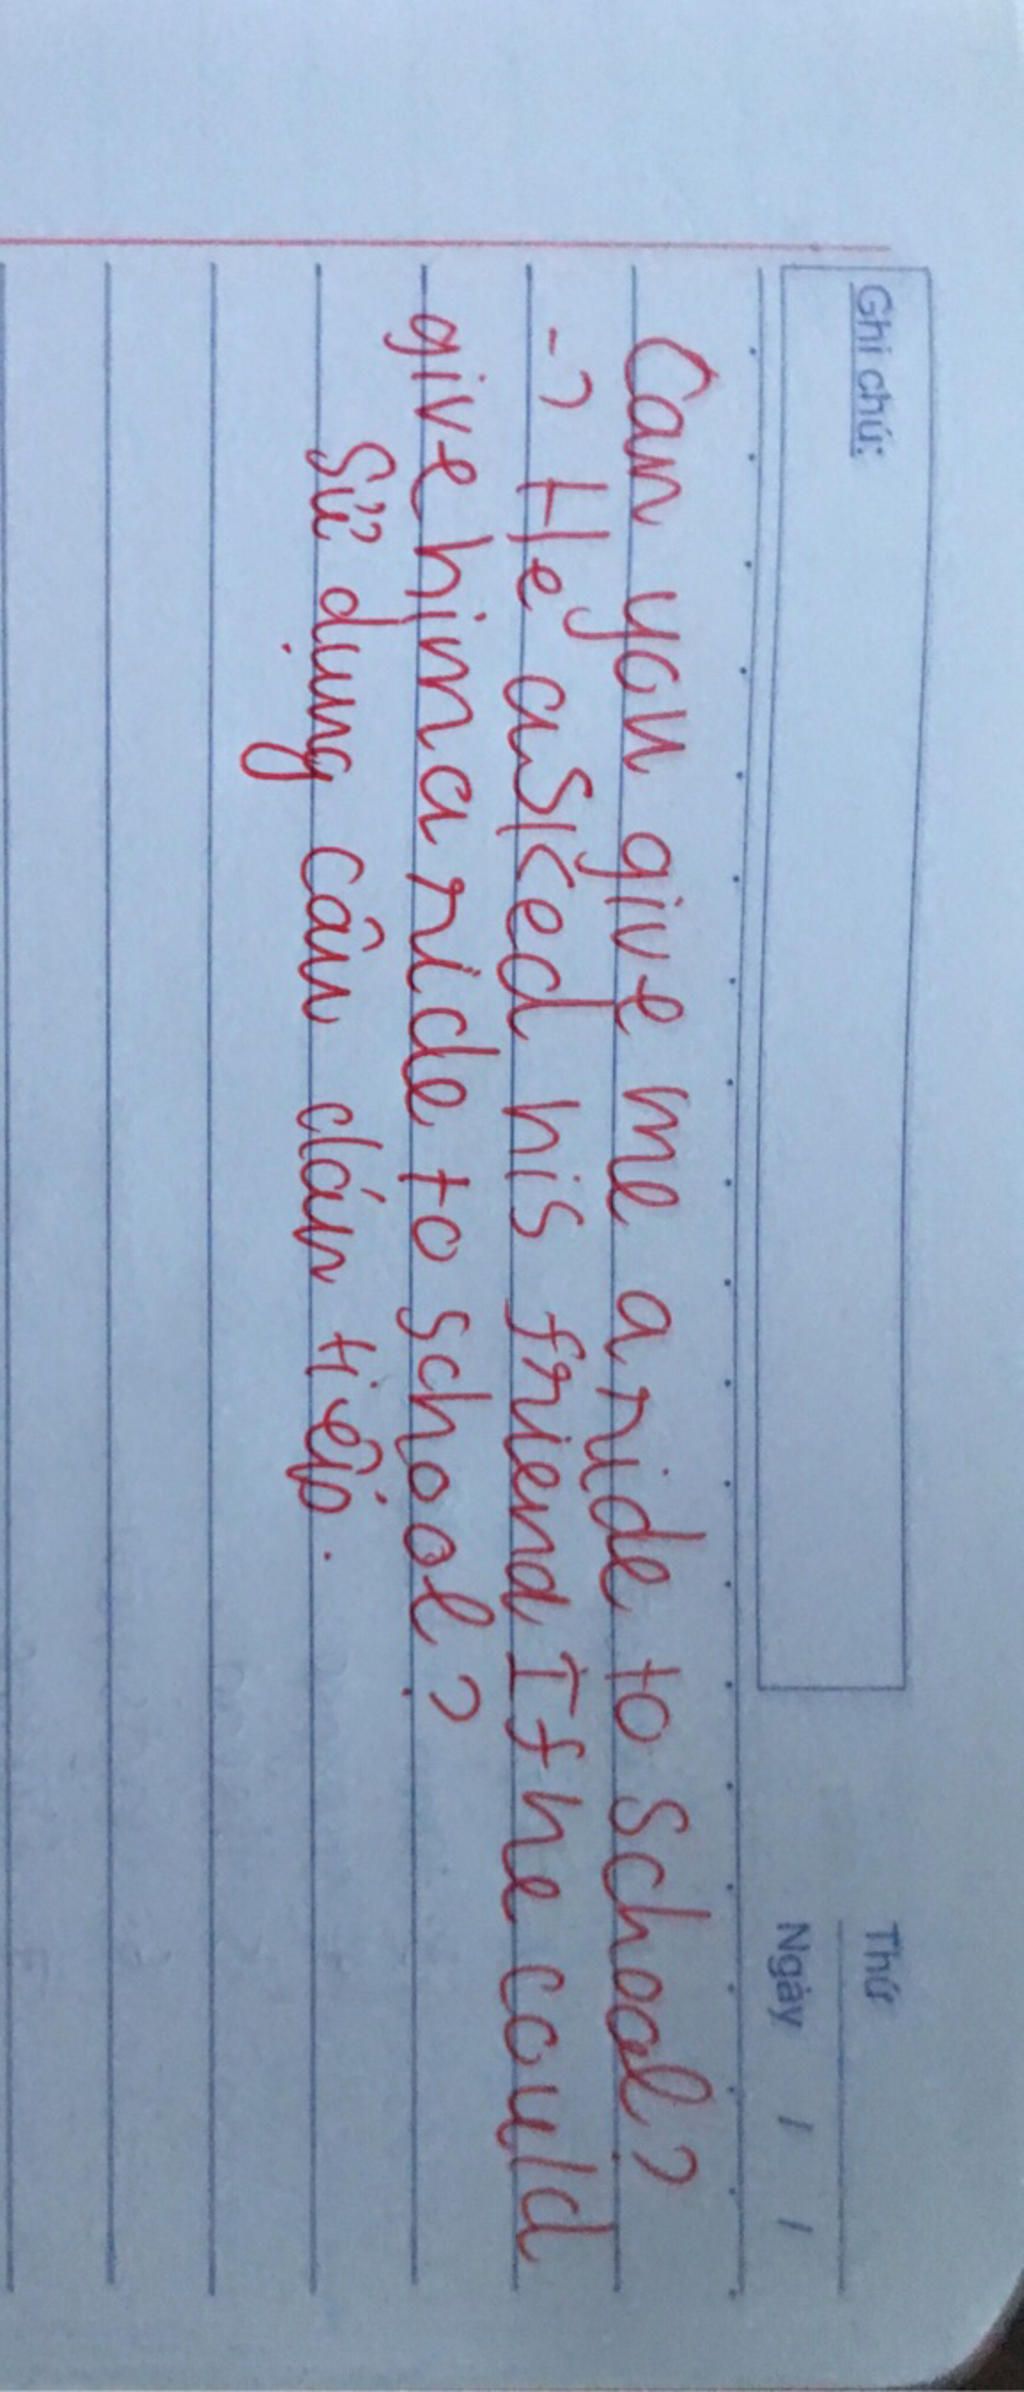 Ghi chú:
Thứ
Ngày / /
Can you give me a ride to school?
-> He asked his friend If he could
give him a ride to school?
Sử dụng câu dán tiếp.